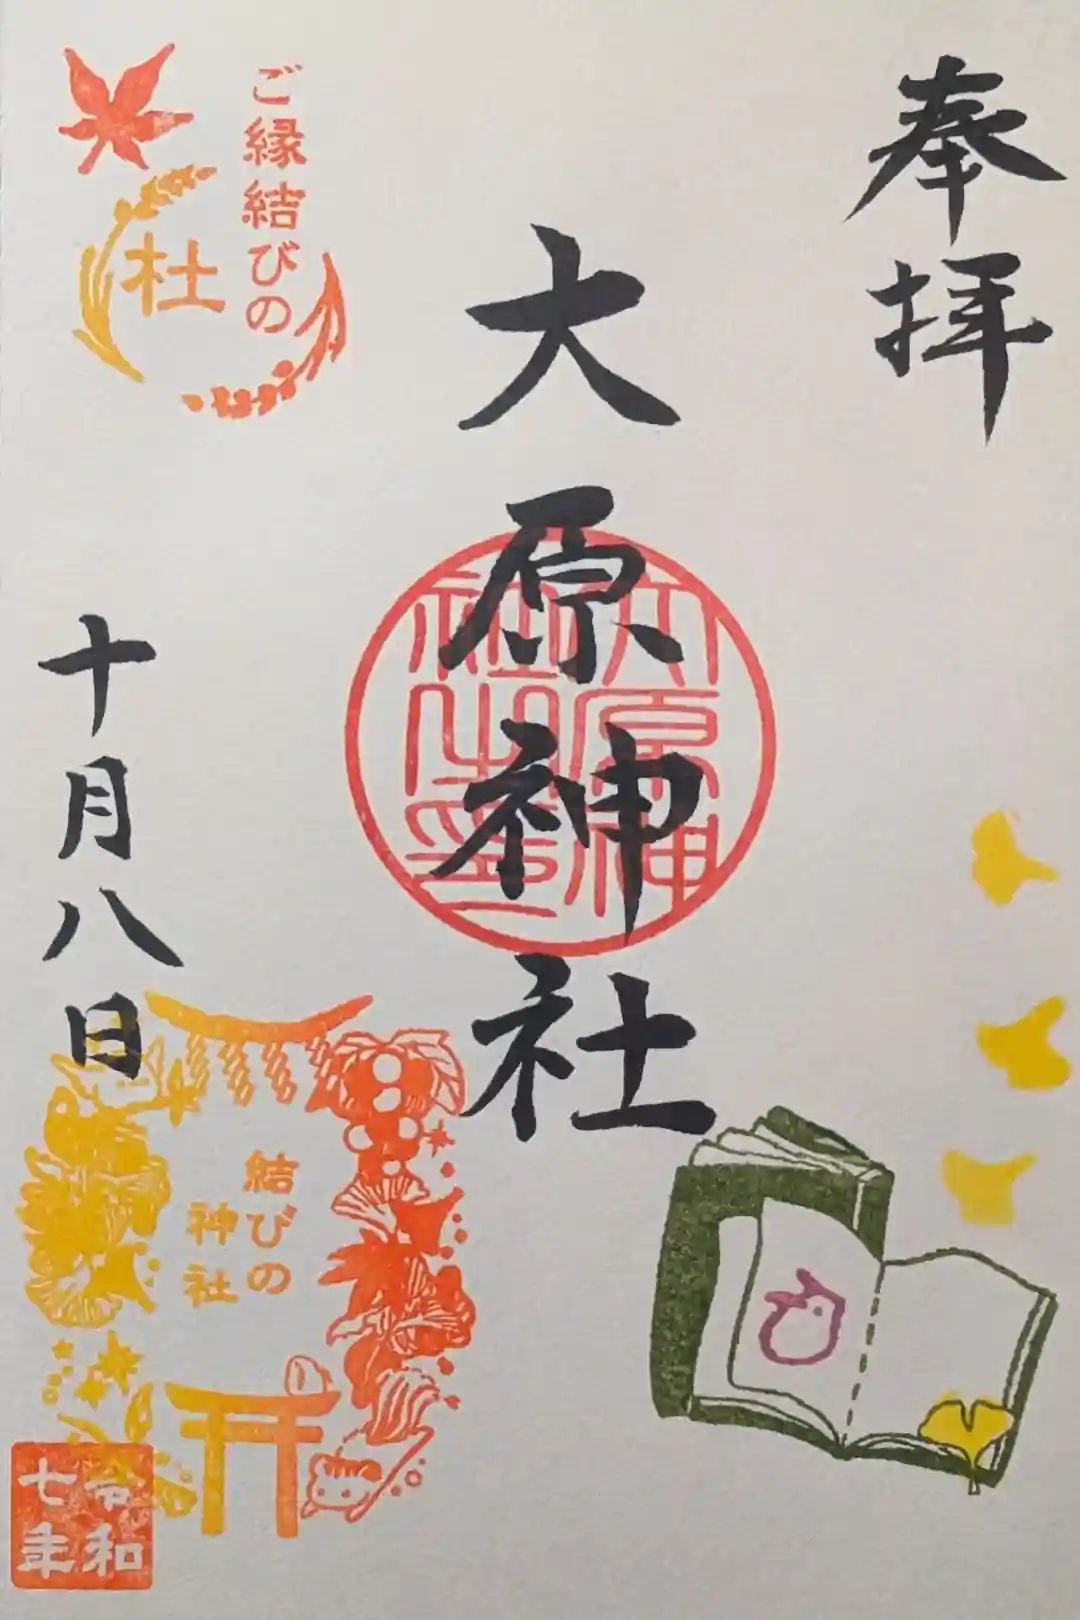 奉拝
大原神社
大原神社之印
ご縁結びの
杜
十月八日
結びの
神社
令和
七年